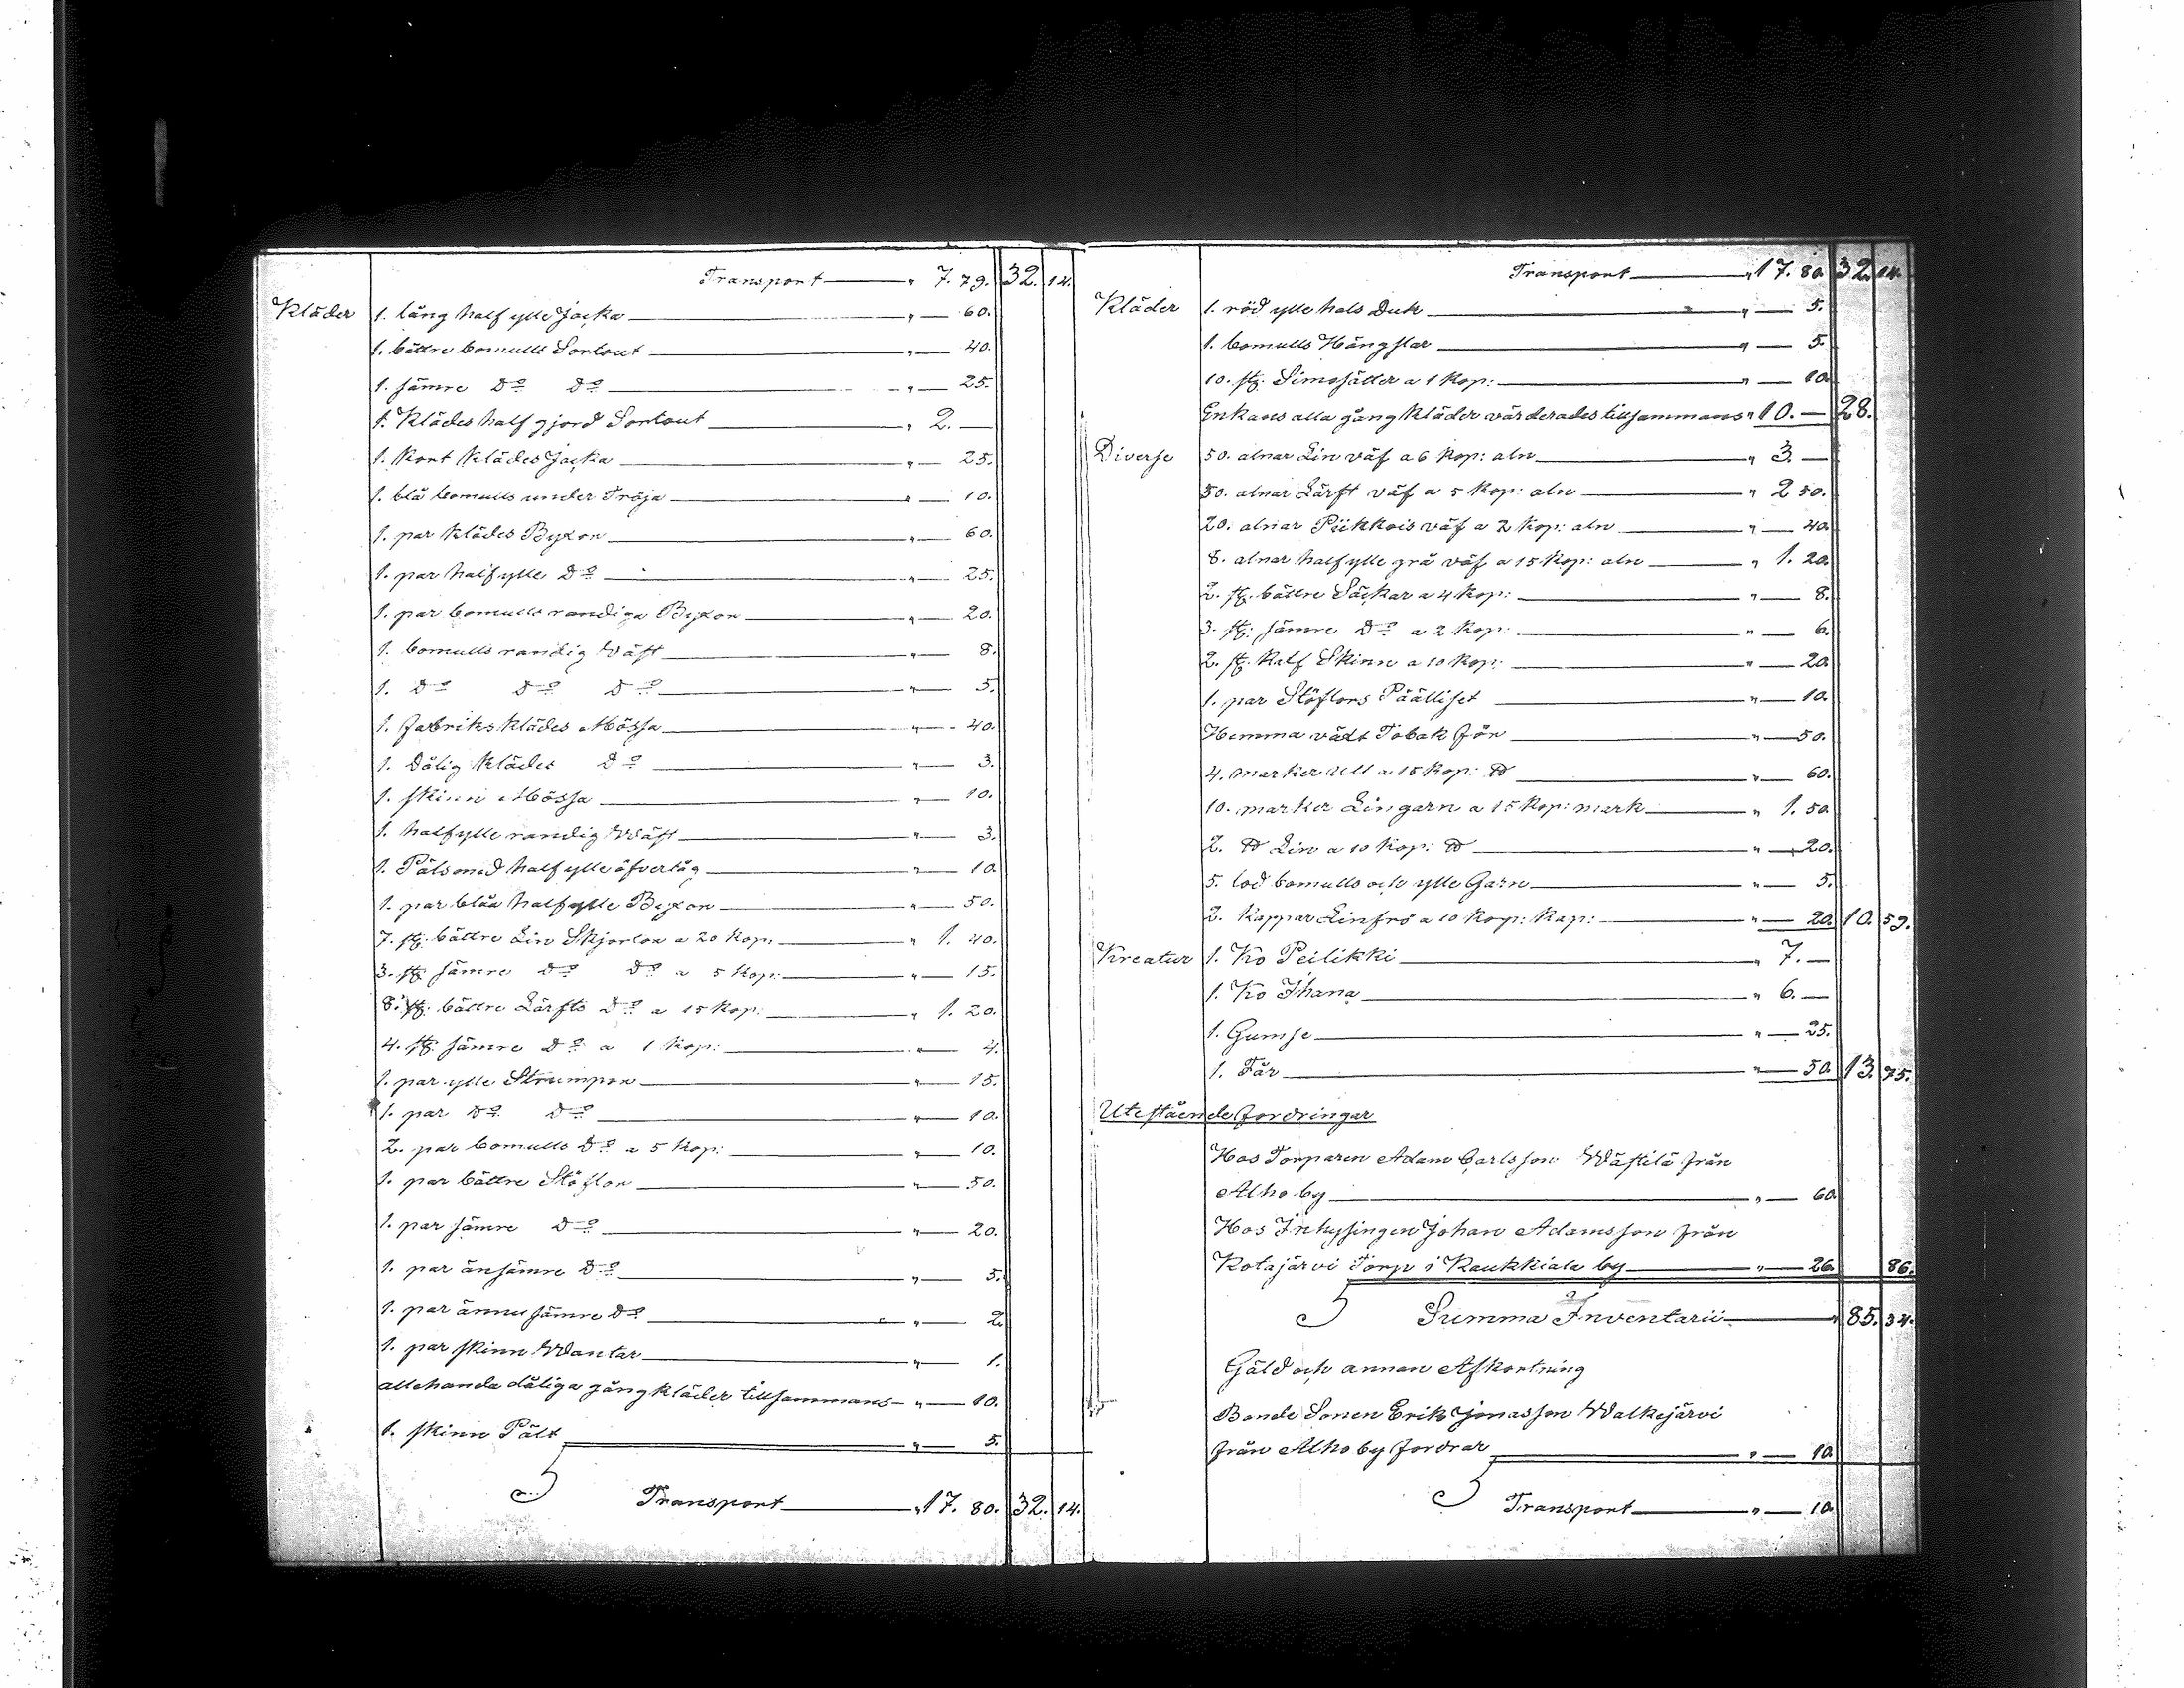 Transport — " 7. 79. 32. 14.
Kläder 1. lång half ylle Jacka — " — 60.
1. bättre bomulls Sortout — " — 40.
1. sämre Do Do — " — 25.
1. Klädes half gjord Sortout — " 2. —
1. Kort Klädes Jacka — " — 25.
1. blå bomulls under Tröja — " — 10.
1. par Klädes Byxor — " — 60.
1. par half ylle Do — " — 25.
1. par bomulls randiga Byxor — " — 20.
1. bomulls randig Wäst — " — 8.
1. Do Do Do — " — 5.
1. fabriks klädes Mössa — " — 40.
1. Dålig Klädes Do — " — 3.
1. skinn Mössa — " — 10.
1. halfylle randig Wäst — " — 3.
1. Päls med half ylle öfvertåg — " — 10.
1. par blåa halfylle Byxor — " — 50.
7. st: bättre Lin Skjortor a 20 Kop: — " 1. 40.
3. st: sämre Do Do a 5 Kop: — " — 15.
8. st: bättre Lärfts Do a 15 Kop: — " 1. 20.
4. st: sämre Do a 1 Kop: — " — 4.
1. par ylle Strumpor — " — 15.
1. par Do Do — " — 10.
2. par bomulls Do a 5 Kop: — " — 10.
1. par bättre Stöflor — " — 50.
1. par sämre Do — " — 20.
1. par änsämre Do — " — 5.
1. par ännu sämre Do — " — 2.
1. par skinn Wantar — " — 1.
allehanda dåliga gångkläder tillsammans — " — 10.
1. skinn Pält — " — 5.
Transport — " 17. 80. 32. 14.
Transport — " 17. 80. 32. 14.
Kläder 1. röd ylle hals Duk — " — 5.
1. bomulls Hängslar — " — 5.
10. st: Simssätter a 1 Kop: — " — 10.
Enkans alla gång Kläder värderades tillsammans " 10. — 28.
Diverse 50. alnar Lin väf a 6 Kop: aln — " 3. —
50. alnar Lärft väf a 5 Kop: aln — " 2 50.
20. alnar Piikkois väf a 2 Kop: aln — " — 40.
8. alnar halfylle grå väf a 15 Kop: aln — " 1. 20.
2. st: bättre Säckar a 4 Kop: — " — 8.
3. st: sämre Do a 2 Kop: — " — 6.
2. st: Kalf Skinn a 10 Kop: — " — 20.
1. par Stöflors Päälliset — " — 10.
Hemma växt Tobak för — " — 50.
4. marker Ull a 15 Kop: ℔ — " — 60.
10. marker Lingarn a 15 Kop: mark — " 1. 50.
2. ℔ Lin a 10 Kop: ℔ — " — 20.
5. lod bomulls och ylle Garn — " — 5.
2. Kappar Linfrö a 10 Kop: Kap: — " — 20. 10. 59.
Kreatur 1. Ko Peilikki — " 7. —
1. Ko Ihana — " 6. —
1. Gumse — " — 25.
1. Får — " — 50. 13. 75.
Utestående fordringar
Hos Torparen Adam Carlsson Wästilä från
Alho by — " — 60.
Hos Inhysingen Johan Adamsson från
Kotajärvi Torp i Raukkiala by — " — 26. 86.
Summa Inventarii — " 85. 34.
Gäld och annan Afkortning
Bonde Sonen Erik Jonasson Walkejärvi
från Alho by fordrar — " — 10.
Transport — " — 10.